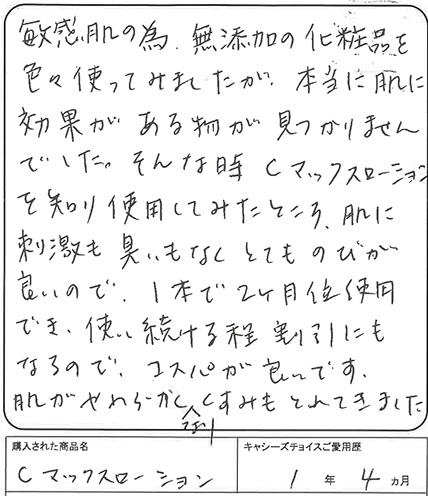 敏感肌の為、無添加の化粧品を
色々使ってみましたが、本当に肌に
効果がある物が見つかりません
でした。そんな時Cマックスローション
を知り使用してみたところ、肌に
刺激も臭いもなくとてものびが
良いので、1本で2ヶ月位使用
でき、使い続ける程割引にも
なるので、コスパが良いです。
肌がやわらかくなりくすみもとれてきました
購入された商品名 キャシーズチョイスご愛用歴
Cマックスローション 1年4ヵ月